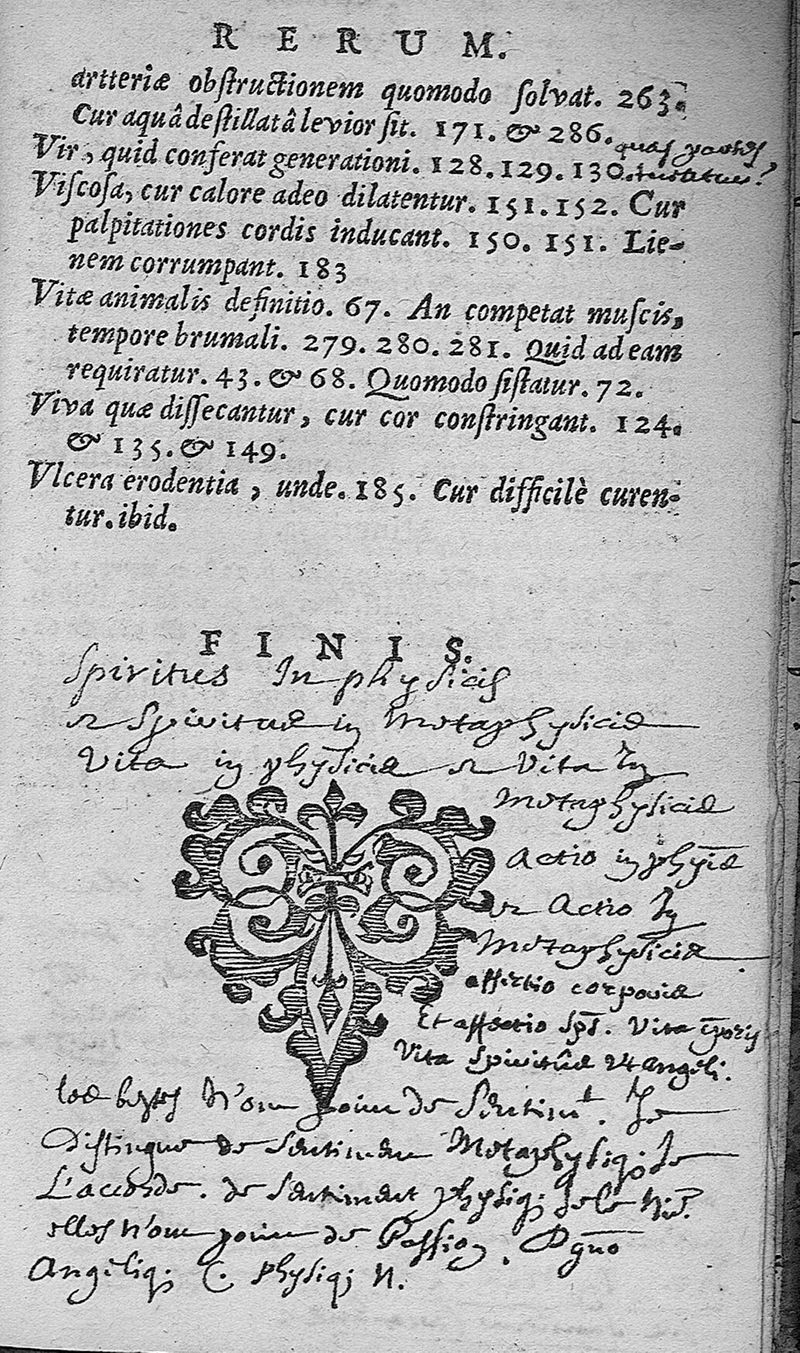 RERUM.
artteriæ obstructionem quomodo solvat. 263.
Cur aquâ destillatâ levior sit. 171. & 286.
Vir, quid conferat generationi. 128. 129. 130.
Viscosa, cur calore adeo dilatentur. 151. 152. Cur
palpitationes cordis inducant. 150. 151. Lie-
nem corrumpant. 183
Vitæ animalis definitio. 67. An competat muscis,
tempore brumali. 279. 280. 281. Quid ad eam
requiratur. 43. & 68. Quomodo sistatur. 72.
Viva quæ dissecantur, cur cor constringant. 124.
& 135. & 149.
Vlcera erodentia, unde. 185. Cur difficilè curen-
tur. ibid.
FINIS.
Spiritus In physicis
Spiritus in Metaphysicis
Vita in physicis Vita In
Metaphysicis
Actio in
Actio In
Metaphysicis
affectio corporis
Et affectio Vita
Vita Angeli.
bestes N'ont point de Je
Distingue de sentiment Metaphysiq; Je
L'accorde. de sentiment physiq; Je le
elles N'ont point de Passion.
Angeliq; C. physiq; N.